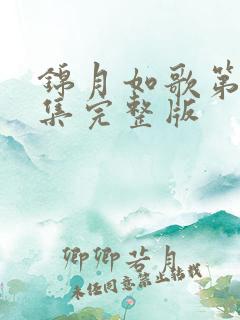 錦月如歌第
集完整版
卿卿若月
未经同意禁止转载